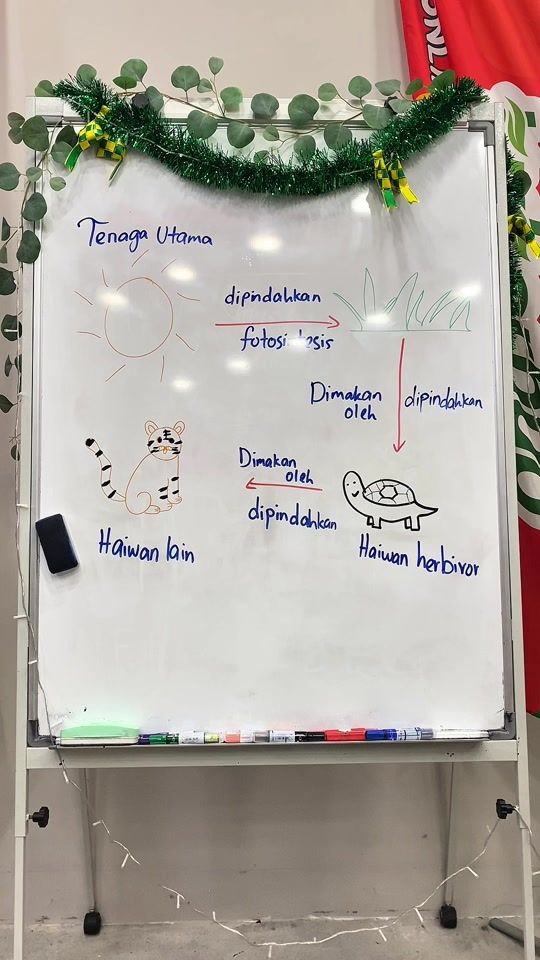 Tenaga Utama
dipindahkan
fotosintesis
Dimakan
oleh
dipindahkan
Dimakan
oleh
dipindahkan
Haiwan lain
Haiwan herbivor